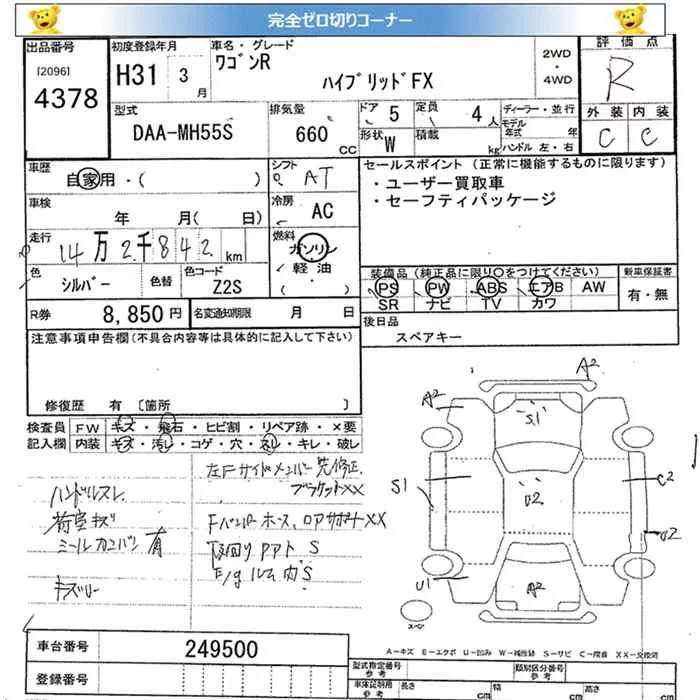 完全ゼロ切りコーナー
出品番号
[2096]
4378
初度登録年月
H31 3 月
車名・グレード
ワゴンR
ハイブリッドFX
2WD
・
4WD
評価点
R
外装 内装
C C
型式
DAA-MH55S
排気量
660 CC
ドア 5
定員 4 人
形状 W
積載 kg
ディーラー・並行
モデル年式 年
ハンドル 左・右
車歴
自家用・( )
シフト
AT
車検
年 月( 日)
冷房
AC
走行
14万2千842 km
燃料
ガソリン
・軽油・
( )
色
シルバー
色替
色コード
Z2S
セールスポイント (正常に機能するものに限ります)
・ユーザー買取車
・セーフティパッケージ
装備品(純正品に限り○をつけてください)
PS PW ABS エアB AW
SR ナビ TV カワ
新車保証書
有・無
R券 8,850円
名変通知期限 月 日
後日品
スペアキー
注意事項申告欄(不具合内容等は具体的に記入して下さい)
修復歴 有 〔箇所 〕
検査員記入欄
FW キズ・飛石・ヒビ割・リペア跡・×要
内装 キズ・汚レ・コゲ・穴・スレ・キレ・破レ
左Fサイドメンバー先修正
ブラケットXX
ハンドルスレ
荷室キズ
Fバンパーホース、ロアサポートXX
下回りアアト S
E/gルム内S
キズリー
A2
A2
S1
S1
U2
C2
U2
U1
A2
スペア
A-キズ E-エクボ U-凹み W-補修跡 S-サビ C-腐食 XX-交換済
車台番号 249500
登録番号
型式指定番号
類別区分番号
参考
車体証明用
参考
長さ cm
幅 cm
高さ cm